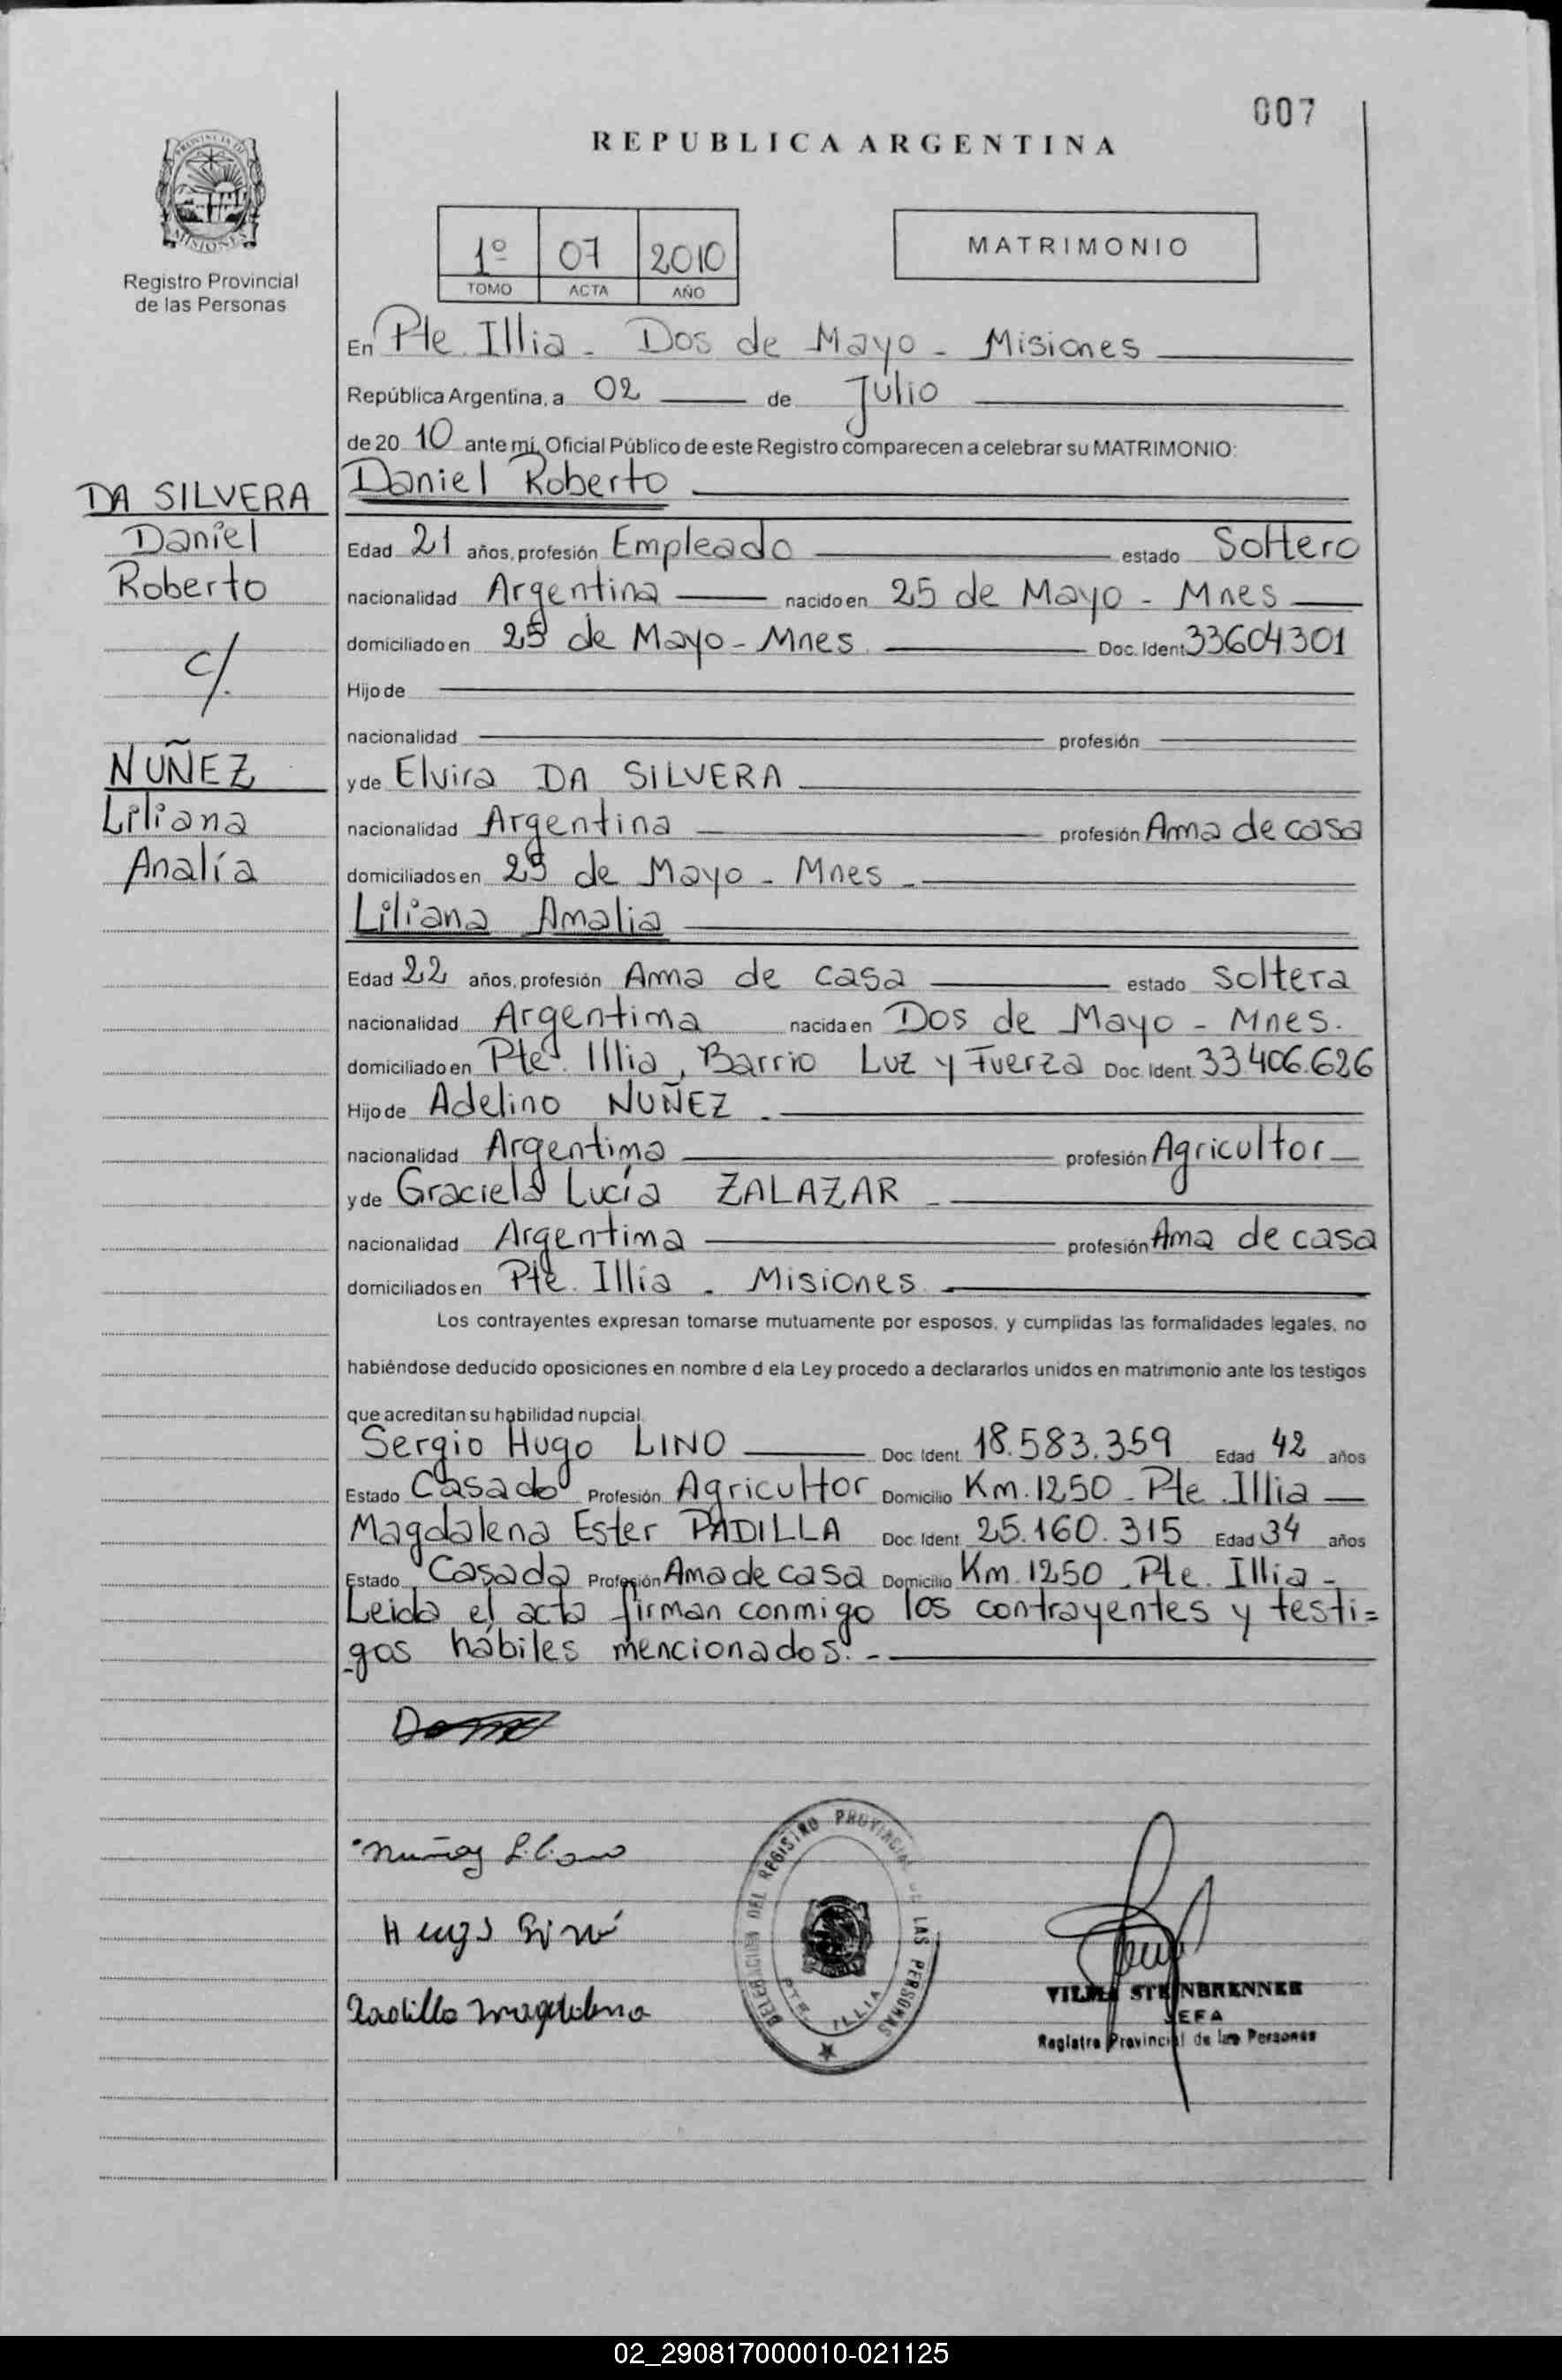 007
REPUBLICA ARGENTINA
PROVINCIA DE
MISIONES
Registro Provincial
de las Personas
1º 07 2010
TOMO ACTA AÑO
MATRIMONIO
En Pte. Illia - Dos de Mayo - Misiones
República Argentina, a 02 de Julio
de 20 10 ante mí, Oficial Público de este Registro comparecen a celebrar su MATRIMONIO:
DA SILVERA
Daniel
Roberto
c/.
NUÑEZ
Liliana
Analía
Daniel Roberto
Edad 21 años, profesión Empleado estado Soltero
nacionalidad Argentina nacido en 25 de Mayo - Mnes
domiciliado en 25 de Mayo - Mnes. Doc. Ident 33604301
Hijo de
nacionalidad profesión
y de Elvira DA SILVERA
nacionalidad Argentina profesión Ama de casa
domiciliados en 25 de Mayo - Mnes -
Liliana Amalia
Edad 22 años, profesión Ama de casa estado Soltera
nacionalidad Argentina nacida en Dos de Mayo - Mnes.
domiciliado en Pte. Illia, Barrio Luz y Fuerza Doc. Ident. 33.406.626
Hijo de Adelino NUÑEZ -
nacionalidad Argentina profesión Agricultor
y de Graciela Lucía ZALAZAR -
nacionalidad Argentina profesión Ama de casa
domiciliados en Pte. Illia - Misiones.
Los contrayentes expresan tomarse mutuamente por esposos, y cumplidas las formalidades legales, no
habiéndose deducido oposiciones en nombre d ela Ley procedo a declararlos unidos en matrimonio ante los testigos
que acreditan su habilidad nupcial.
Sergio Hugo LINO Doc. Ident. 18.583.359 Edad 42 años
Estado Casado Profesión Agricultor Domicilio Km. 1250 - Pte. Illia
Magdalena Ester PADILLA Doc. Ident. 25.160.315 Edad 34 años
Estado Casada Profesión Ama de casa Domicilio Km. 1250 - Pte. Illia -
Leida el acta firman conmigo los contrayentes y testi=
-gos hábiles mencionados. -
Padilla Magdalena
DELEGACION DEL REGISTRO PROVINCIAL DE LAS PERSONAS
PTE. ILLIA
VILMA STEINBRENNER
JEFA
Registro Provincial de las Personas
02_290817000010-021125